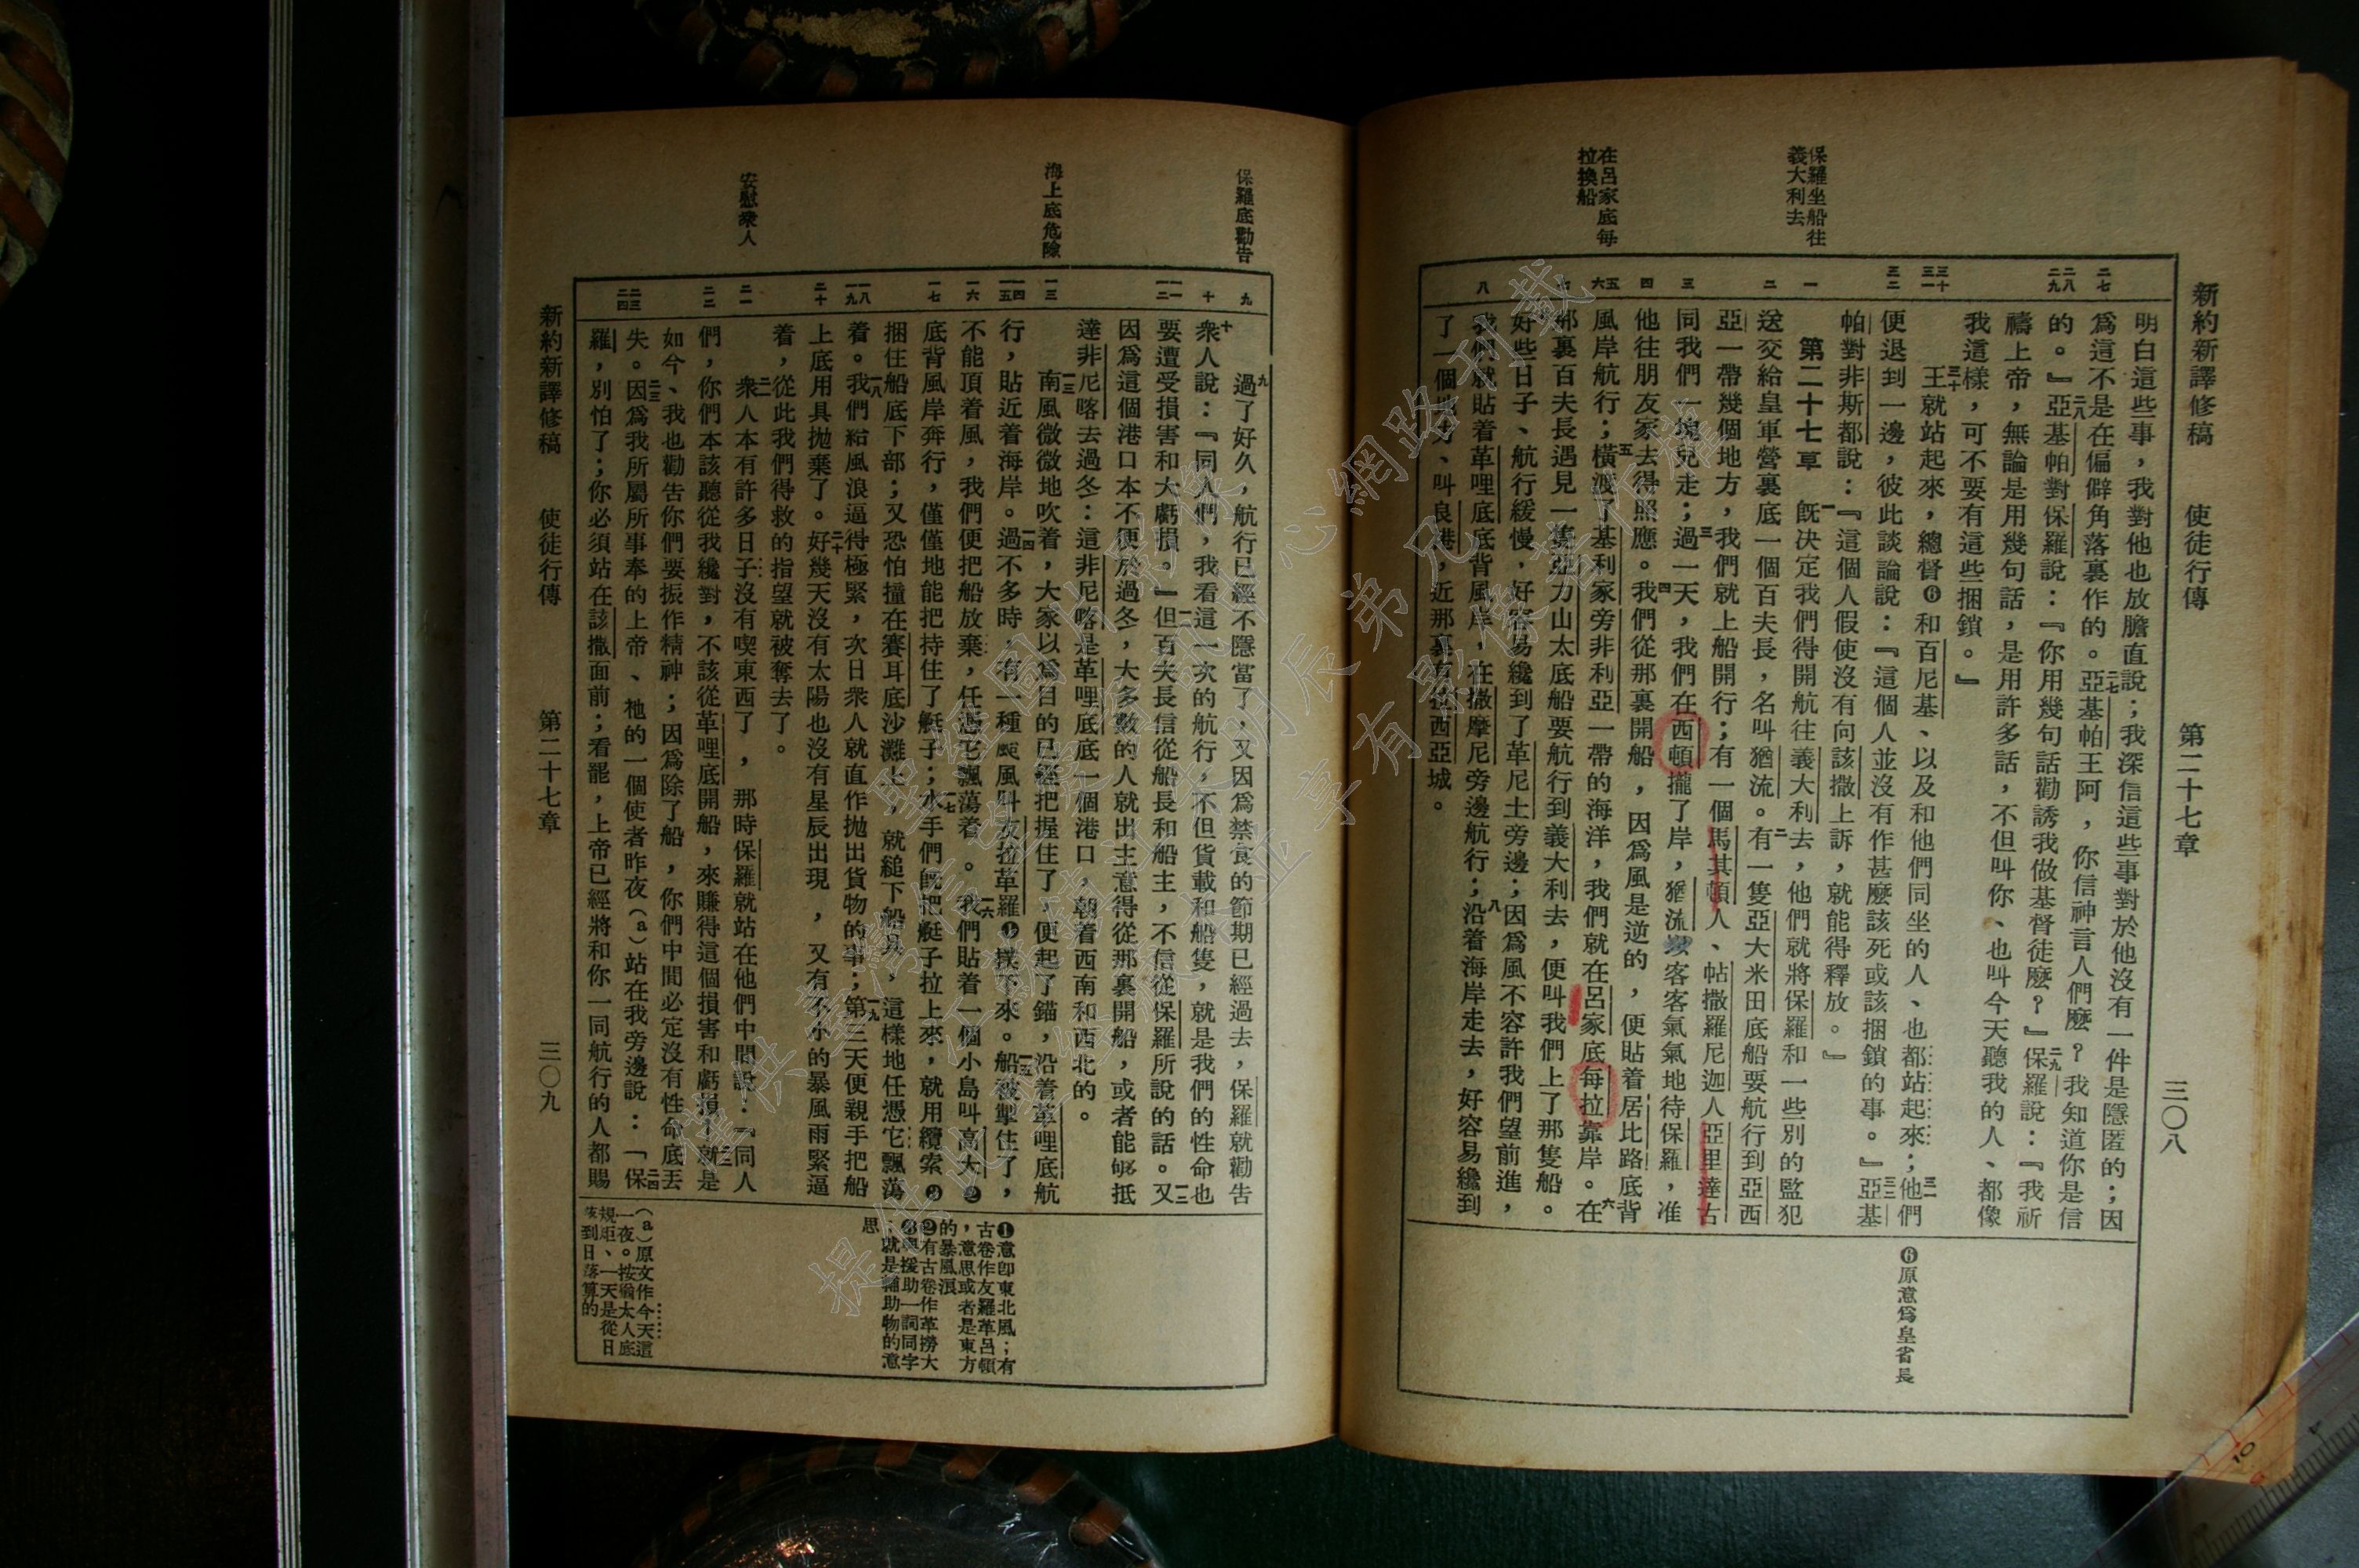 新約新譯修稿　使徒行傳　第二十七章　三〇八
保羅坐船往
義大利去
在呂家底每
拉換船
明白這些事，我對他也放膽直說；我深信這些事對於他沒有一件是隱匿的；因
爲這不是在偏僻角落裏作的。二七亞基帕王阿，你信神言人們麼？我知道你是信
的。』二八亞基帕對保羅說：『你用幾句話勸誘我做基督徒麼？』二九保羅說：『我祈
禱上帝，無論是用幾句話，是用許多話，不但叫你、也叫今天聽我的人、都像
我這樣，可不要有這些捆鎖。』
三十王就站起來，總督❻和百尼基、以及和他們同坐的人、也都站起來；三一他們
便退到一邊，彼此談論說：『這個人並沒有作甚麼該死或該捆鎖的事。』三二亞基
帕對非斯都說：『這個人假使沒有向該撒上訴，就能得釋放。』
第二十七章　一旣決定我們得開航往義大利去，他們就將保羅和一些別的監犯
送交給皇軍營裏底一個百夫長，名叫猶流。二有一隻亞大米田底船要航行到亞西
亞一帶幾個地方，我們就上船開行；有一個馬其頓人、帖撒羅尼迦人亞里達古
同我們一塊兒走；三過一天，我們在西頓攏了岸，猶流客客氣氣地待保羅，准
他往朋友家去得照應。四我們從那裏開船，因爲風是逆的，便貼着居比路底背
風岸航行；五橫渡了基利家旁非利亞一帶的海洋，我們就在呂家底每拉靠岸。六在
那裏百夫長遇見一隻亞力山太底船要航行到義大利去，便叫我們上了那隻船。
好些日子、航行緩慢，好容易纔到了革尼土旁邊；因爲風不容許我們望前進，
我們就貼着革哩底底背風岸，在撒摩尼旁邊航行；八沿着海岸走去，好容易纔到
了一個地方、叫良港，近那裏有拉西亞城。
❻原意爲皇省長
保羅底勸告
海上底危險
安慰衆人
九過了好久，航行已經不隱當了，又因爲禁食的節期已經過去，保羅就勸告
衆人說：十『同人們，我看這一次的航行，不但貨載和船隻，就是我們的性命也
要遭受損害和大虧損。』一一但百夫長信從船長和船主，不信從保羅所說的話。一二又
因爲這個港口本不便於過冬，大多數的人就出主意得從那裏開船，或者能够抵
達非尼喀去過冬：這非尼喀是革哩底底一個港口，朝着西南和西北的。
一三南風微微地吹着，大家以爲目的已經把握住了，便起了錨，沿着革哩底航
行，貼近着海岸。一四過不多時，有一種颶風叫友拉革羅❶撲下來。一五船被掣住了，
不能頂着風，我們便把船放棄，任憑它飄蕩着。一六我們貼着一個小島叫高大❷
底背風岸奔行，僅僅地能把持住了艇子；一七水手們旣把艇子拉上來，就用纜索❸
捆住船底下部；又恐怕撞在賽耳底沙灘上，就縋下船具，這樣地任憑它飄蕩
着。一八我們給風浪逼得極緊，次日衆人就直作拋出貨物的事；一九第三天便親手把船
上底用具拋棄了。二十好幾天沒有太陽也沒有星辰出現，又有不小的暴風雨緊逼
着，從此我們得救的指望就被奪去了。
二一衆人本有許多日子沒有喫東西了，那時保羅就站在他們中間說：『同人
們，你們本該聽從我纔對，不該從革哩底開船，來賺得這個損害和虧損。二二就是
如今、我也勸告你們要振作精神；因爲除了船，你們中間必定沒有性命底丟
失。二三因爲我所屬所事奉的上帝、祂的一個使者昨夜（a）站在我旁邊說：二四「保
羅，別怕了；你必須站在該撒面前；看罷，上帝已經將和你一同航行的人都賜
❶意卽東北風；有
古卷作友羅革呂頓
，意思或者是東方
的暴風浪
❷有古卷作革撈大
❸與援助一詞同字
；就是輔助物的意
思
（a）原文作今天這
一夜。按猶太人底
規矩、一天是從日
落到日落算的
新約新譯修稿　使徒行傳　第二十七章　三〇九